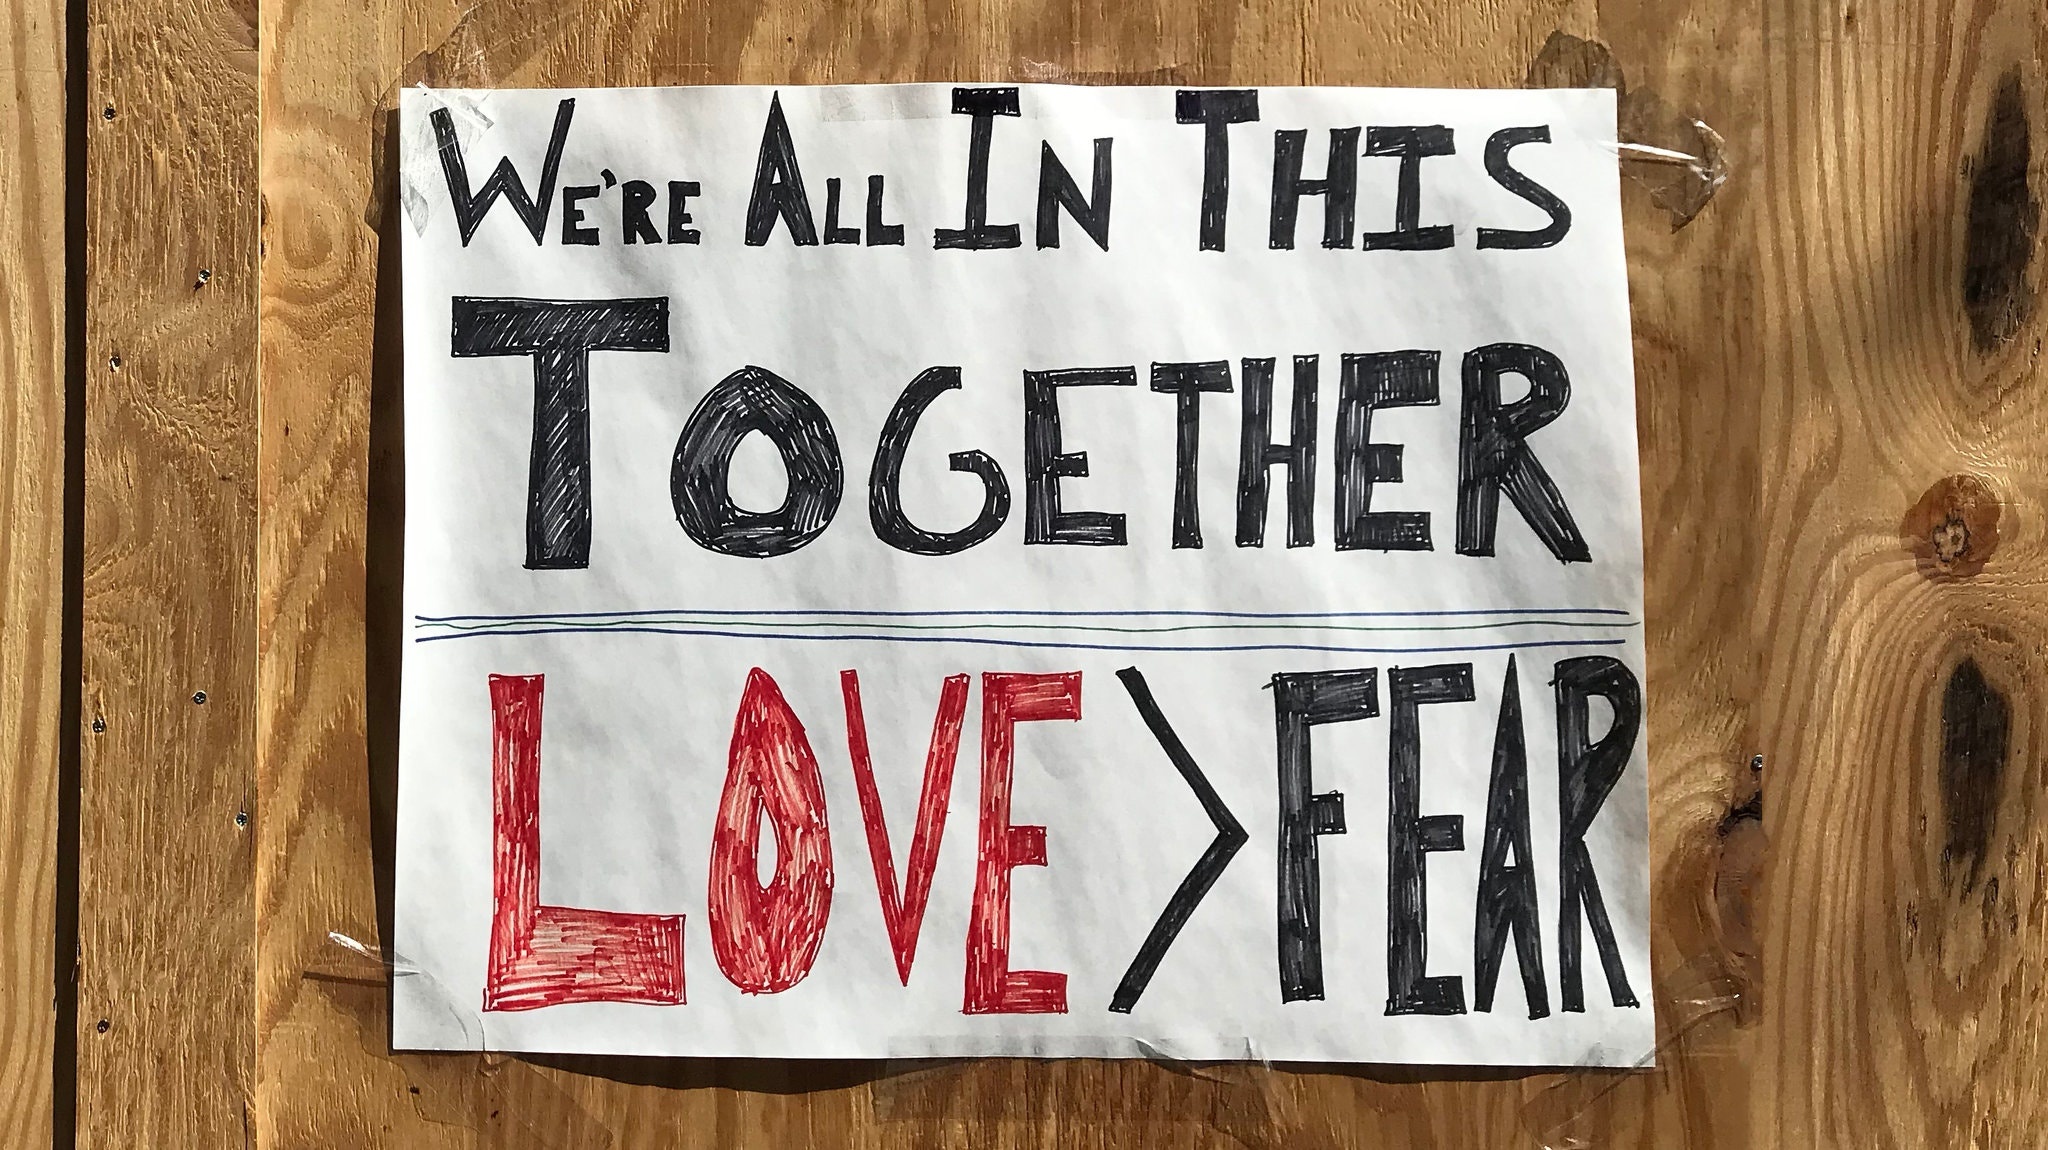 WE'RE ALL IN THIS
TOGETHER
LOVE > FEAR